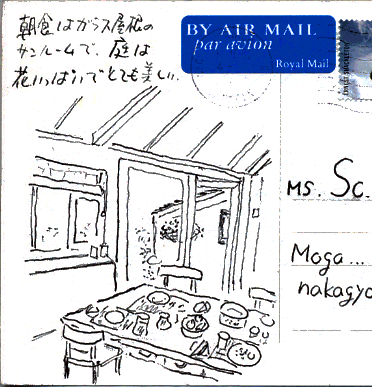 朝食はガラス屋根の
サンルームで、庭は
花いっぱいでとても美しい。
BY AIR MAIL
par avion
Royal Mail
MS. Sc.
Moga...
nakagyo